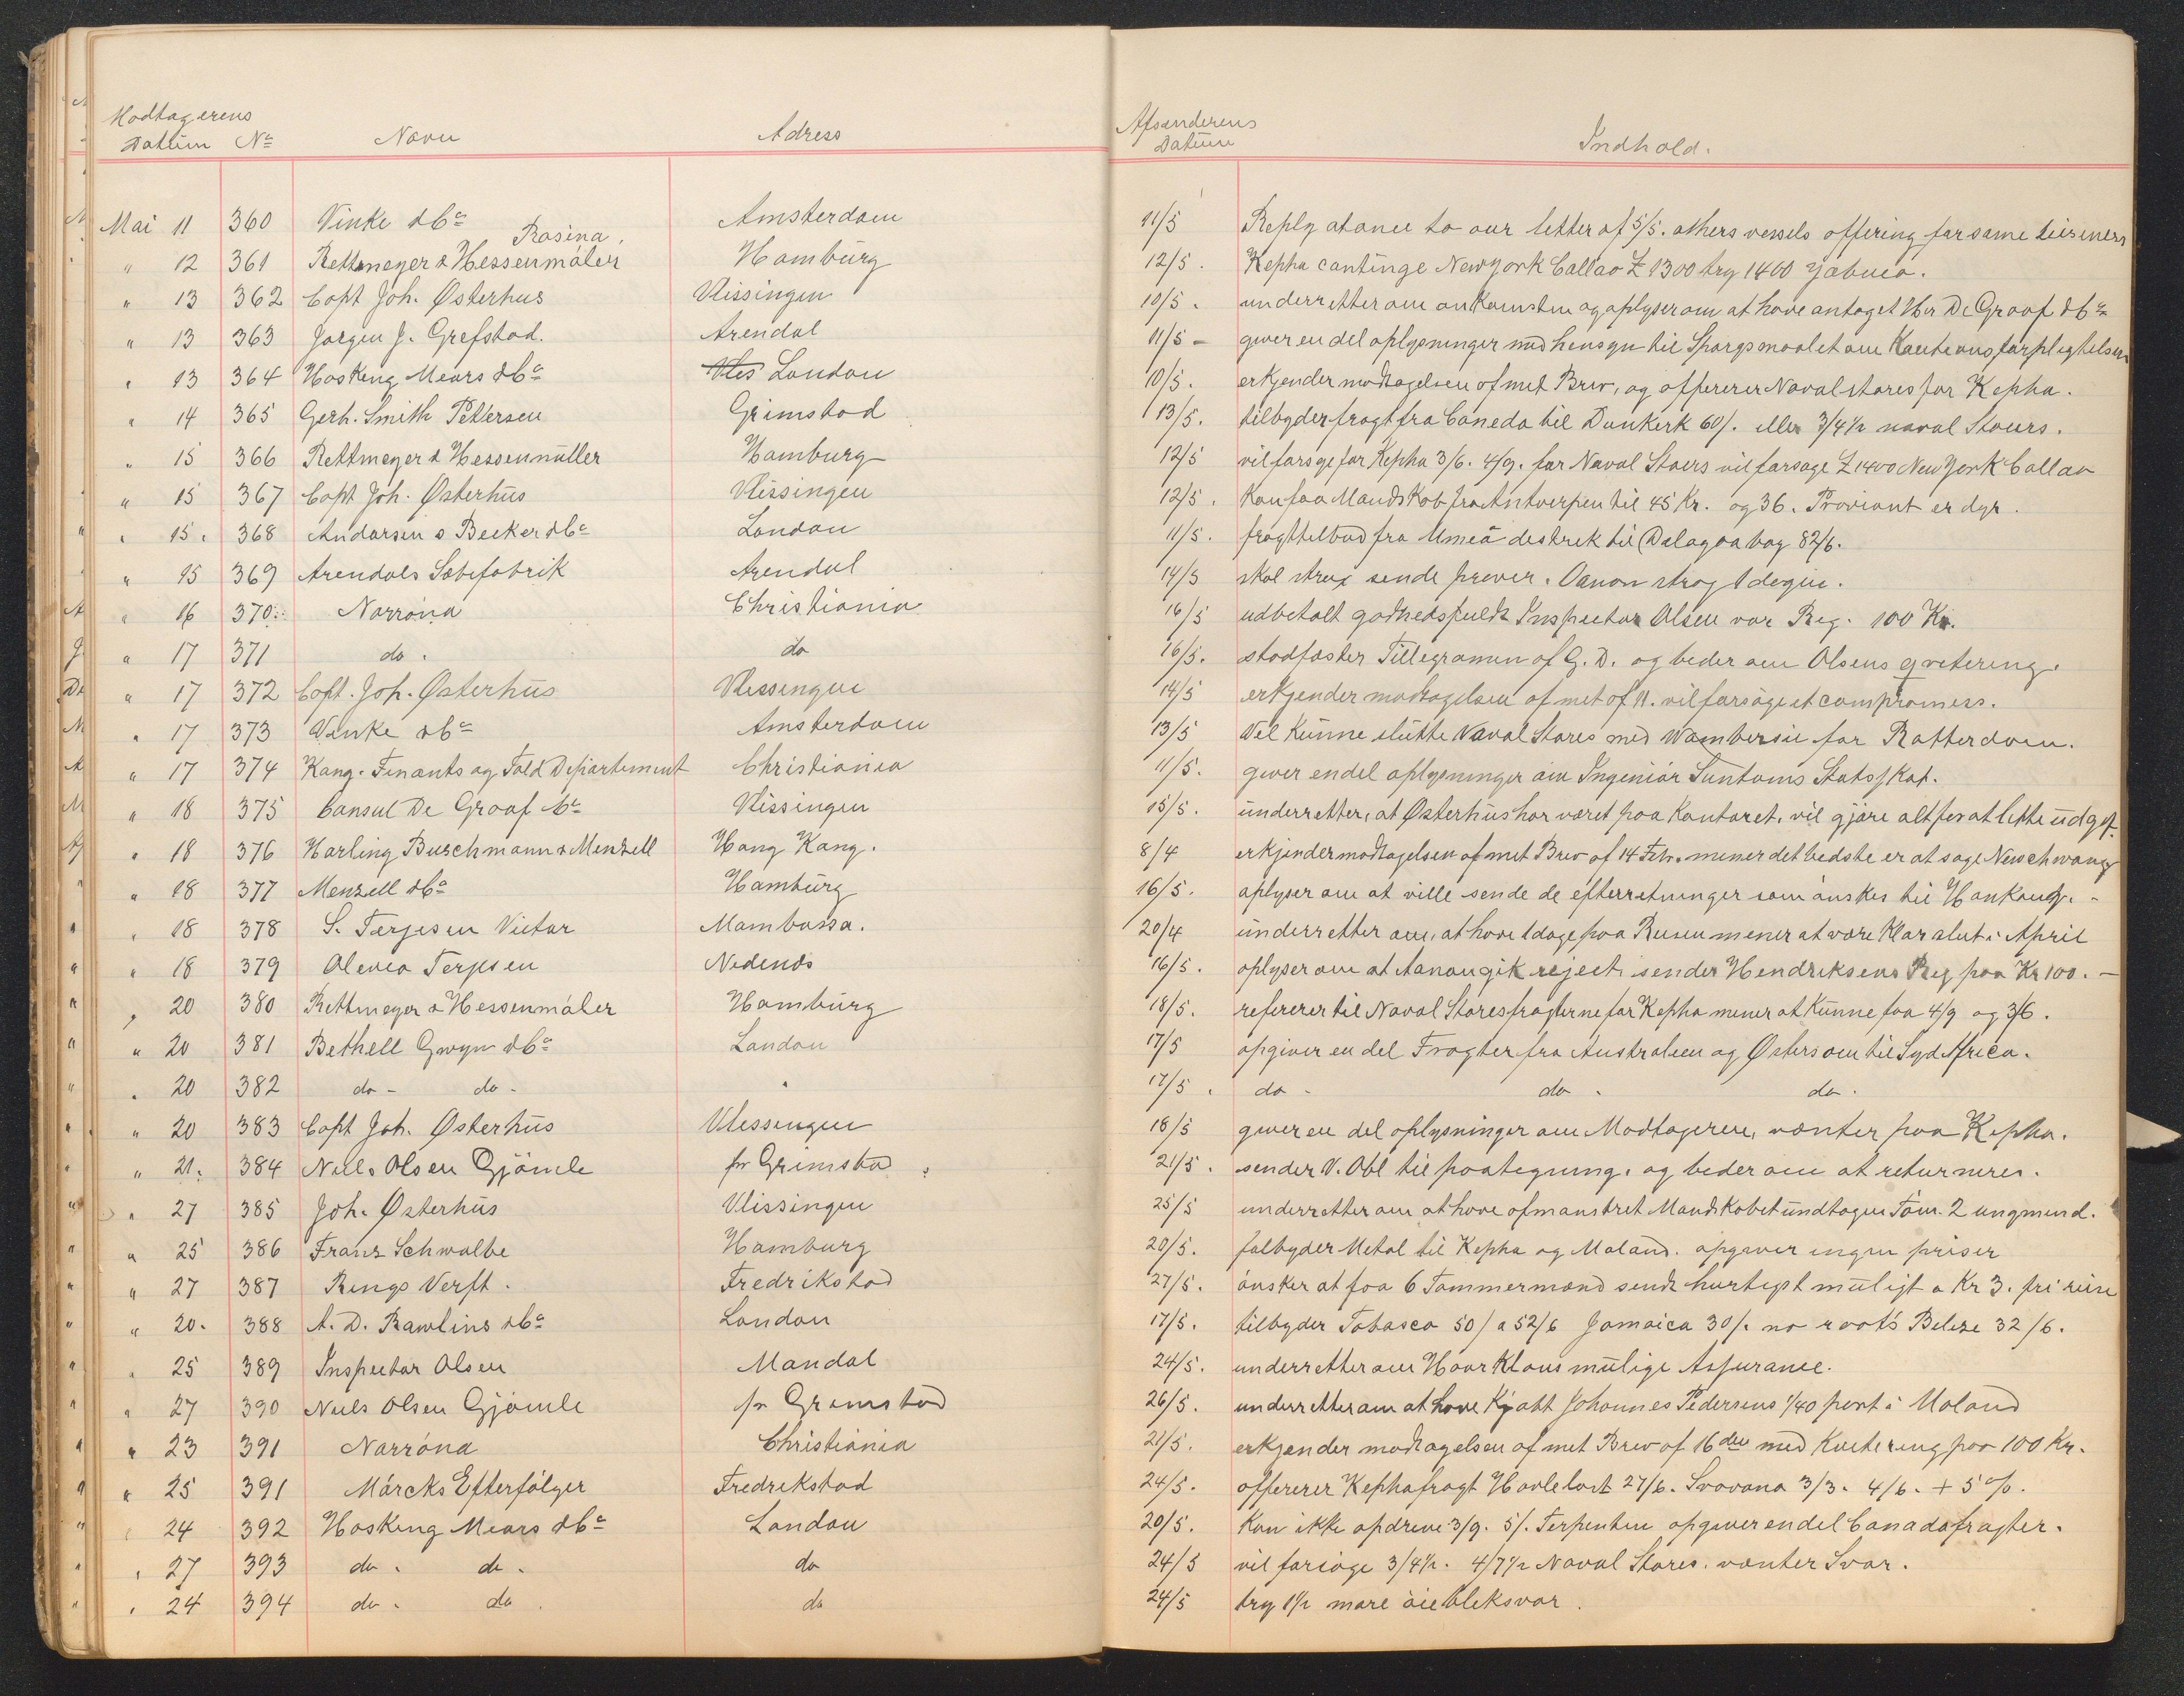 Modtagerens
Datum No Navn Adress
Afsenderens
Datum Indhold.
Mai 11 360 Vinke & Co Amsterdam 11/5 Reply at once to our letter of 5/5. others vessels offering for same
Rosina.
" 12 361 Rettmeyer & Hessenmöler Hamburg 12/5. Kepha cantinge New York Callao £ 1300 try 1400
" 13 362 Capt Joh. Østerhus Vlissingen 10/5. underretter om ankomsten og oplyser om at have antaget Hrr De Graaf & Co
" 13 363 Jørgen J. Grefstad. Arendal 11/5 - giver en del oplysninger med hensyn til Spørgsmaalet om Kautionsforpligtelsen
" 13 364 Hosking Mears & Co London 10/5. erkjender modtagelsen af mit Brev, og offererer Naval stores for Kepha.
" 14 365 Gerh. Smith Petersen Grimstad 13/5. tilbyder fragt fra Caneda til Dunkerk 60/. eller 3/4½ naval Stoers.
" 15 366 Rettmeyer & Hessenmüller Hamburg 12/5 vil forsøge for Kepha 3/6. 4/9. for Naval Stoers vil forsøge £ 1400 New York Callao
" 15 367 Capt Joh. Østerhus Vlissingen 12/5. Kan faa Mandskab fra Antverpen til 45 Kr. og 36. Proviant er dyr.
" 15. 368 Andorsen & Becker & Co London 11/5. fragttilbud fra Umeå destrek til Delagoa bay 82/6.
" 15 369 Arendals Sæbefabrik Arendal 14/5 skal strax sende prøver.
" 16 370. Norröna Christiania 16/5 udbetalt godhedsfuldt Inspector Olsen vor Reg. 100 Kr.
" 17 371 do. do 16/5. stadfæster Tillegramm af G. D. og beder om Olsens qvitering.
" 17 372 Capt. Joh. Østerhus Vlissengen 14/5 erkjender modtagelsen af mit af 11. vil forsöge et compromiss.
" 17 373 Vinke & Co Amsterdam 13/5 Vel Kunne slutte Naval Stores med Wambersie for Rotterdam.
" 17 374 Kong. Finants og Told Departement Christiania 11/5. giver endel oplysninger om Ingeniör Suntums Statsskat.
" 18 375 Consul De Graaf Co Vlissingen 15/5. underretter, at Østerhus har været paa Kontoret. vil gjøre alt for at lette udgf.
" 18 376 Harling Buschmann & Menzell Hong Kong. 8/4 erkjender modtagelsen af mit Brev af 14 Febr. mener det bedste er at søge Newchwang
" 18 377 Menzell & Co Hamburg 16/5. oplyser om at ville sende de efterretninger som önskes til Honkong. -
" 18 378 S. Terjesen Victor Mombassa. 20/4 underretter om, at have dage paa Reisen mener at være Klar slut i April
" 18 379 Olevia Terjesen Nedenes 16/5. oplyser om at Aanon gik reject. sender Hendriksens Reg paa Kr 100. -
" 20 380 Rettmeyer & Hessenmöler Hamburg 18/5. refererer til Naval Stores fragterne for Kepha mener at Kunne faa 4/9 og 3/6.
" 20 381 Bethell Gwyn & Co London 17/5 opgiver en del Fragter fra Australien og Østersøen til Syd Africa.
" 20 382 do - do - " 17/5. do - do. do.
" 20 383 Capt Joh. Østerhus Vlissengen 18/5 giver en del oplysninger om Modtageren, venter paa Kepha.
" 21. 384 Niels Olsen Gjömle pr Grimstad. 21/5. sender V. Obl til paategning. og beder om at returneres.
" 27 385 Joh. Østerhus Vlissingen 25/5 underretter om at have afmønstret Mandskabet undtagen Töm. 2 ungmend.
" 25 386 Franz Schwalbe Hamburg 20/5. falbyder Metal til Kepha og Moland. opgiver ingen priser
" 27 387 Rings Verft. Fredrikstad 27/5. önsker at faa 6 Tømmermænd sendt hurtigst muligt a Kr 3. fri reise
" 20. 388 A. D. Rawlins & Co London 17/5. tilbyder Tobasco 50/ a 52/6 Jamaica 30/. no roots Belize 32/6.
" 25 389 Inspector Olsen Mandal 24/5. underretter om Haar Klous mulige Assurance.
" 27 390 Niels Olsen Gjömle pr Grimstad 26/5. underretter om at have Kjøbt Johannes Pedersens 1/40 part i Moland
" 23 391 Norröna Christiania 21/5. erkjender modtagelsen af mit Brev af 16 den med Kvitering paa 100 Kr.
" 25 391 Märcks Efterfölger Fredrekstad 24/5. offererer Kephafragt Havlelast 27/6. Savana 3/3. 4/6. + 5 %.
" 24 392 Hosking Mears & Co London 20/5. Kan ikke opdreve 3/9. 5/. Terpentin opgiver endel Canadafragter.
" 27 393 do. do. do 24/5 vil forsöge 3/4½. 4/7½ Naval Stores. venter Svar.
" 24 394 do. do. do 24/5 try 1½ more öiebliksvar.